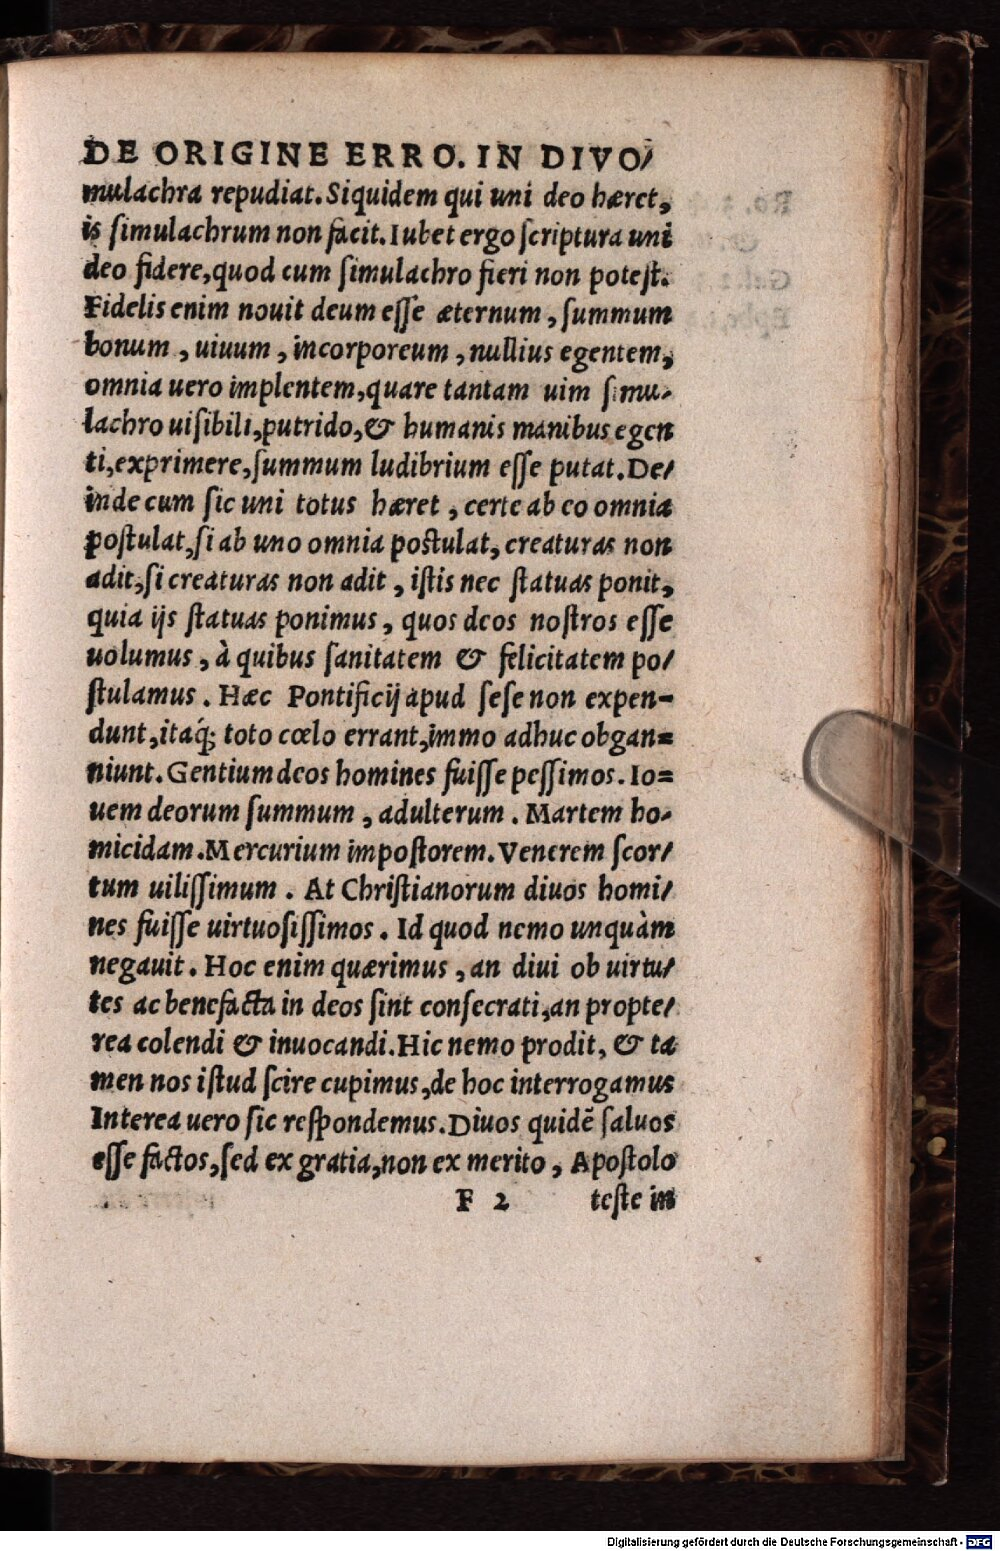 DE ORIGINE ERRO. IN DIVO/
mulachra repudiat. Siquidem qui uni deo hæret,
is ſimulachrum non facit. Iubet ergo ſcriptura uni
deo fidere, quod cum ſimulachro fieri non poteſt.
Fidelis enim nouit deum eſſe æternum, ſummum
bonum, uiuum, incorporeum, nullius egentem,
omnia uero implentem, quare tantam uim ſimu-
lachro uiſibili, putrido, & humanis manibus egen
ti, exprimere, ſummum ludibrium eſſe putat. De/
inde cum ſic uni totus hæret, certe ab eo omnia
poſtulat, ſi ab uno omnia poſtulat, creaturas non
adit, ſi creaturas non adit, iſtis nec ſtatuas ponit,
quia ijs ſtatuas ponimus, quos deos noſtros eſſe
uolumus, à quibus ſanitatem & felicitatem po/
ſtulamus. Hæc Pontificij apud ſeſe non expen-
dunt, itaq́; toto cœlo errant, immo adhuc obgan=
niunt. Gentium deos homines fuiſſe peſſimos. Io=
uem deorum ſummum, adulterum. Martem ho-
micidam. Mercurium impoſtorem. Venerem ſcor/
tum uiliſſimum. At Chriſtianorum diuos homi/
nes fuiſſe uirtuoſiſſimos. Id quod nemo unquàm
negauit. Hoc enim quærimus, an diui ob uirtu/
tes ac benefacta in deos ſint conſecrati, an propte/
rea colendi & inuocandi. Hic nemo prodit, & ta
men nos iſtud ſcire cupimus, de hoc interrogamus
Interea uero ſic reſpondemus. Diuos quidē ſaluos
eſſe factos, ſed ex gratia, non ex merito, Apoſtolo
F 2 teſte in
Digitalisierung gefördert durch die Deutsche Forschungsgemeinschaft - DFG